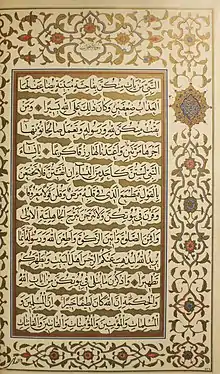 النبي من يأت منكن بفاحشة مبينة يضاعف لها
العذاب ضعفين وكان ذلك على الله يسيرا ومن
يقنت منكن لله ورسوله وتعمل صالحا نؤتها
أجرها مرتين وأعتدنا لها رزقا كريما يا نساء
النبي لستن كأحد من النساء إن اتقيتن فلا تخضعن
بالقول فيطمع الذي في قلبه مرض وقلن قولا معروفا
وقرن في بيوتكن ولا تبرجن تبرج الجاهلية الأولى
وأقمن الصلاة وآتين الزكاة وأطعن الله ورسوله
إنما يريد الله ليذهب عنكم الرجس أهل البيت ويطهركم
تطهيرا واذكرن ما يتلى في بيوتكن من آيات الله
والحكمة إن الله كان لطيفا خبيرا إن المسلمين
والمسلمات والمؤمنين والمؤمنات والقانتين والقانتات